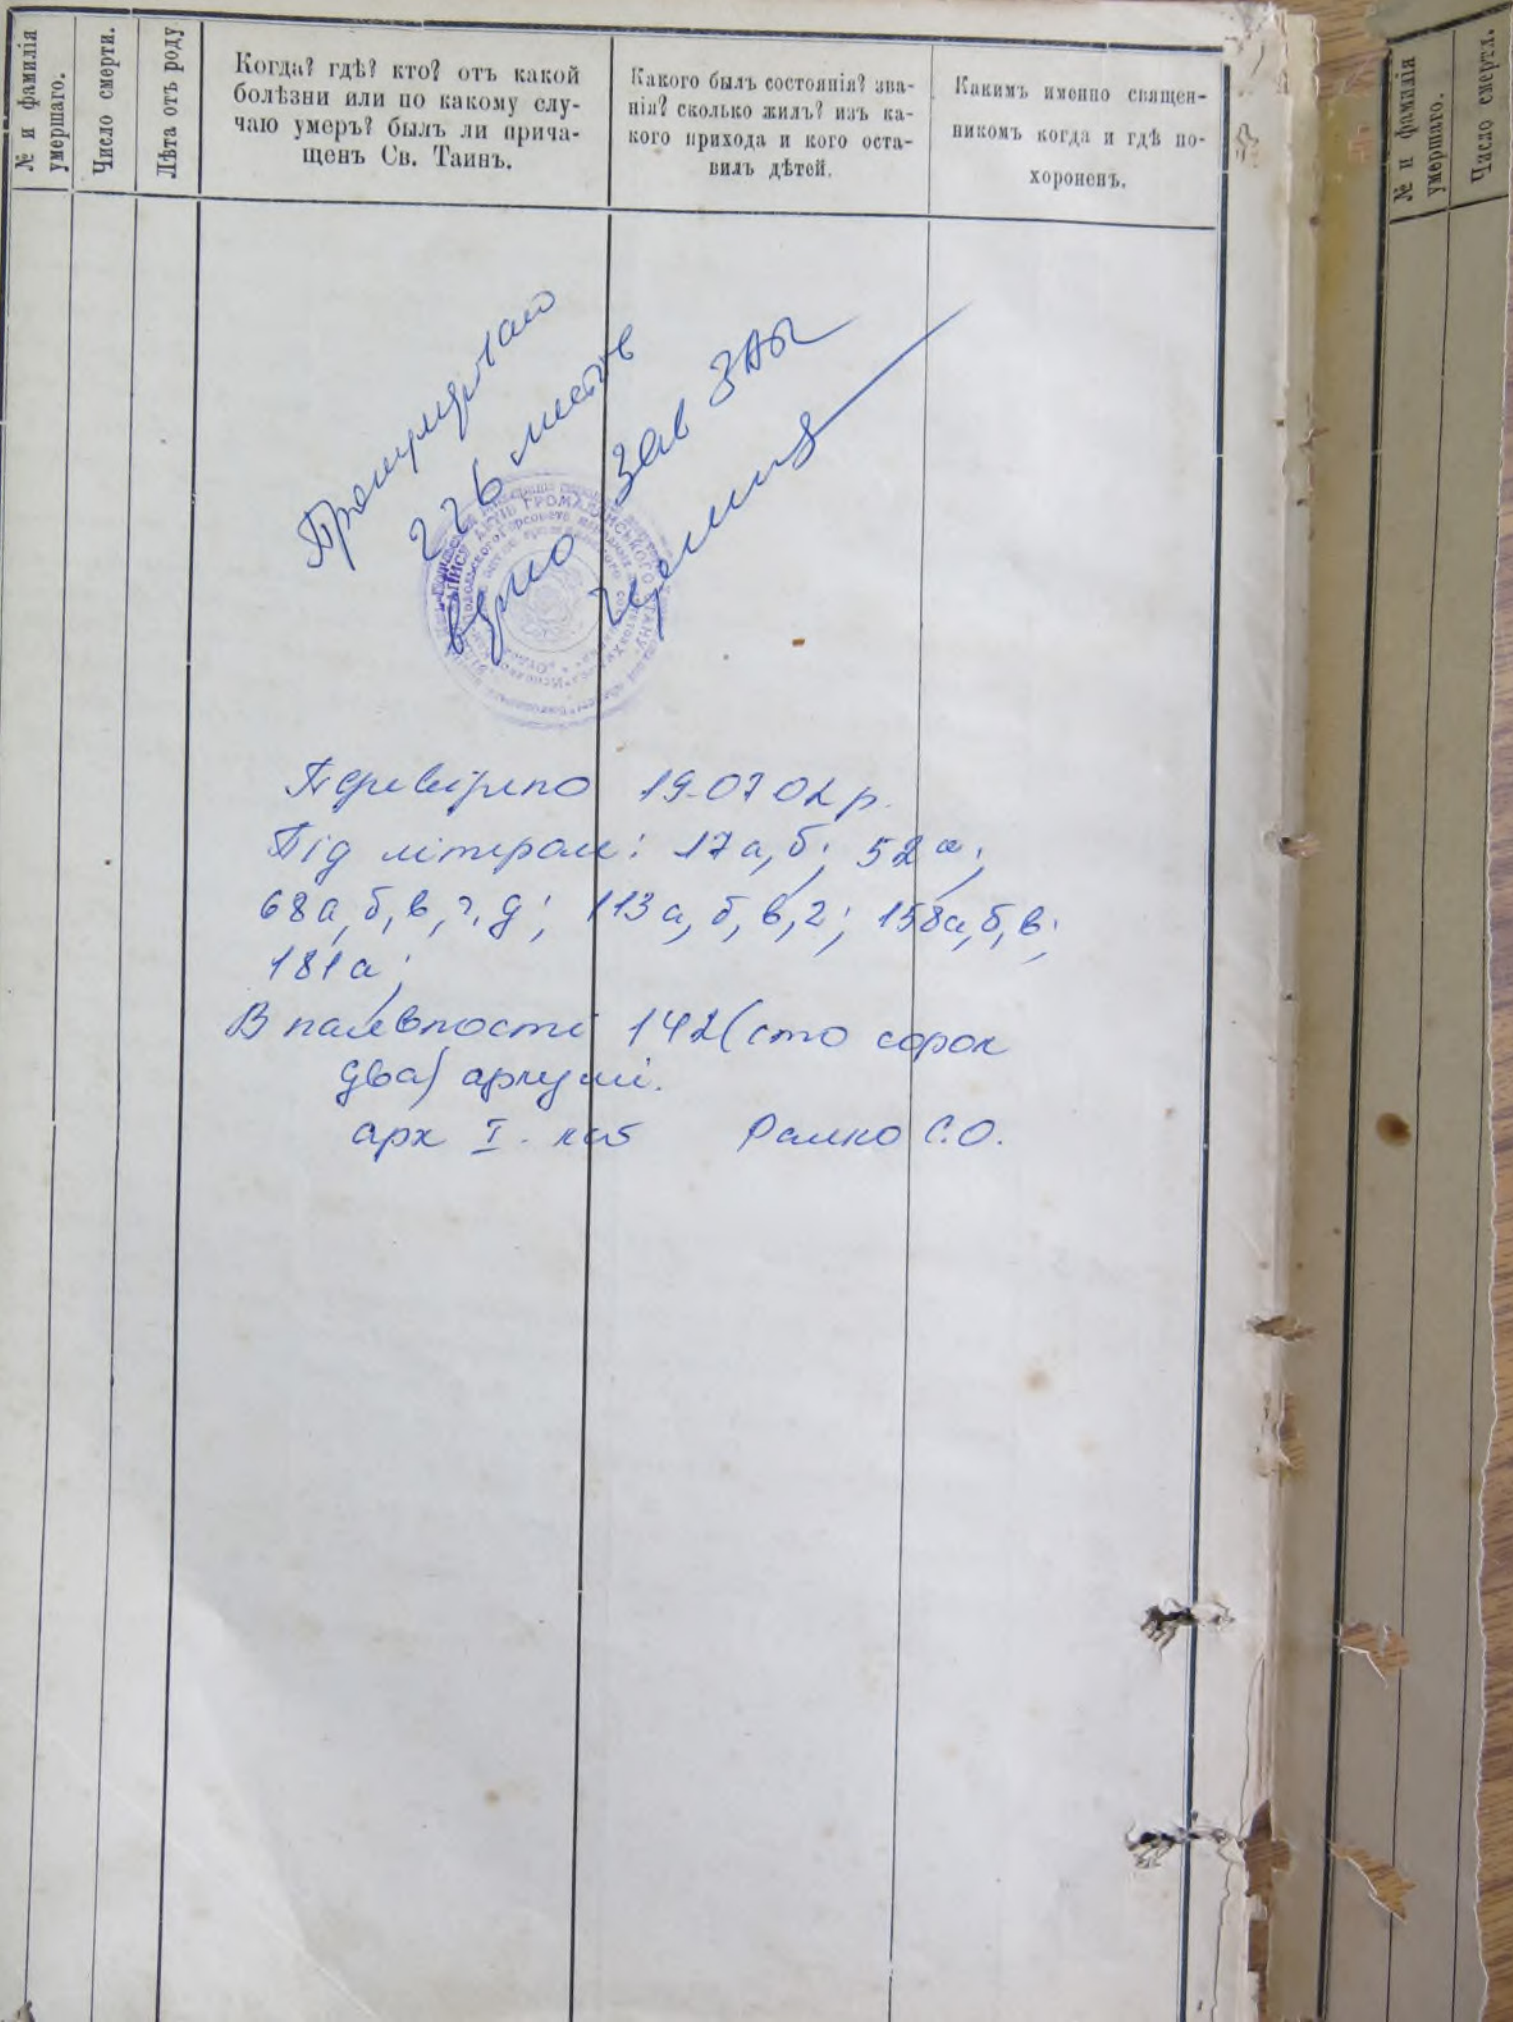 № и фамилія
умершаго.
Число смерти.
Лѣта отъ роду
Когда? гдѣ? кто? отъ какой
болѣзни или по какому слу-
чаю умеръ? былъ ли прича-
щенъ Св. Таинъ.
Какого былъ состоянія? зва-
нія? сколько жилъ? изъ ка-
кого прихода и кого оста-
вилъ дѣтей.
Какимъ именно священ-
никомъ когда и гдѣ по-
хороненъ.
№ и фамилія
умершаго.
Число смерти.
226 листов
врио Зав ЗАГС
ЗАПИСУ АКТІВ ГРОМАДЯНСЬКОГО СТАНУ
Перевірено 19.07 02 р.
Під літерами: 17а, б; 52а;
68а, б, в, г, д; 113а, б, в, г; 158а, б, в;
181а;
В наявності 142 (сто сорок
два) аркуші.
арх І. кат
С.О.